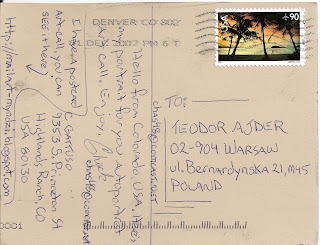 DENVER CO 802
DEC 2007 PM 6 T
USA 90
Hello from Colorado, USA. Here's
my portrait for you Autoportrait
Art call. Enjoy.
chas18@comcast.net
I have a postcard
art-call, you can
see it here:
http://mailart-myndzii.blogspot.com
GARTUSO
9353 D. Princeton St
Highlands Ranch, CO
USA 80130
TO:
TEODOR AJDER
02-904 WARSAW
ul. Bernardynska 21, m45
POLAND
0001